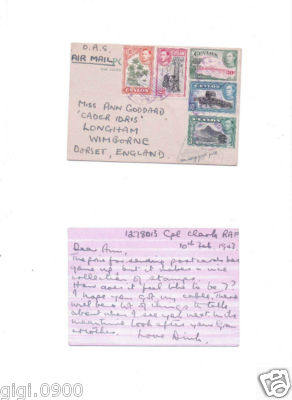 O.A.S.
AIR MAIL
CEYLON
CEYLON
CEYLON
CEYLON
CEYLON
Miss ANN GODDARD
"CADER IDRIS"
LONGHAM
WIMBORNE
DORSET, ENGLAND
1278013 Cpl Clark RAF
10th Feb. 1943
Dear Ann,
The price for sending postcards has
gone up but it makes a nice
collection of stamps.
How does it feel to be 7?
I hope you got my cable. There
will be a lot of things to tell
about when I see you next. In the
meantime look after your Gran
Love
gigi.0900